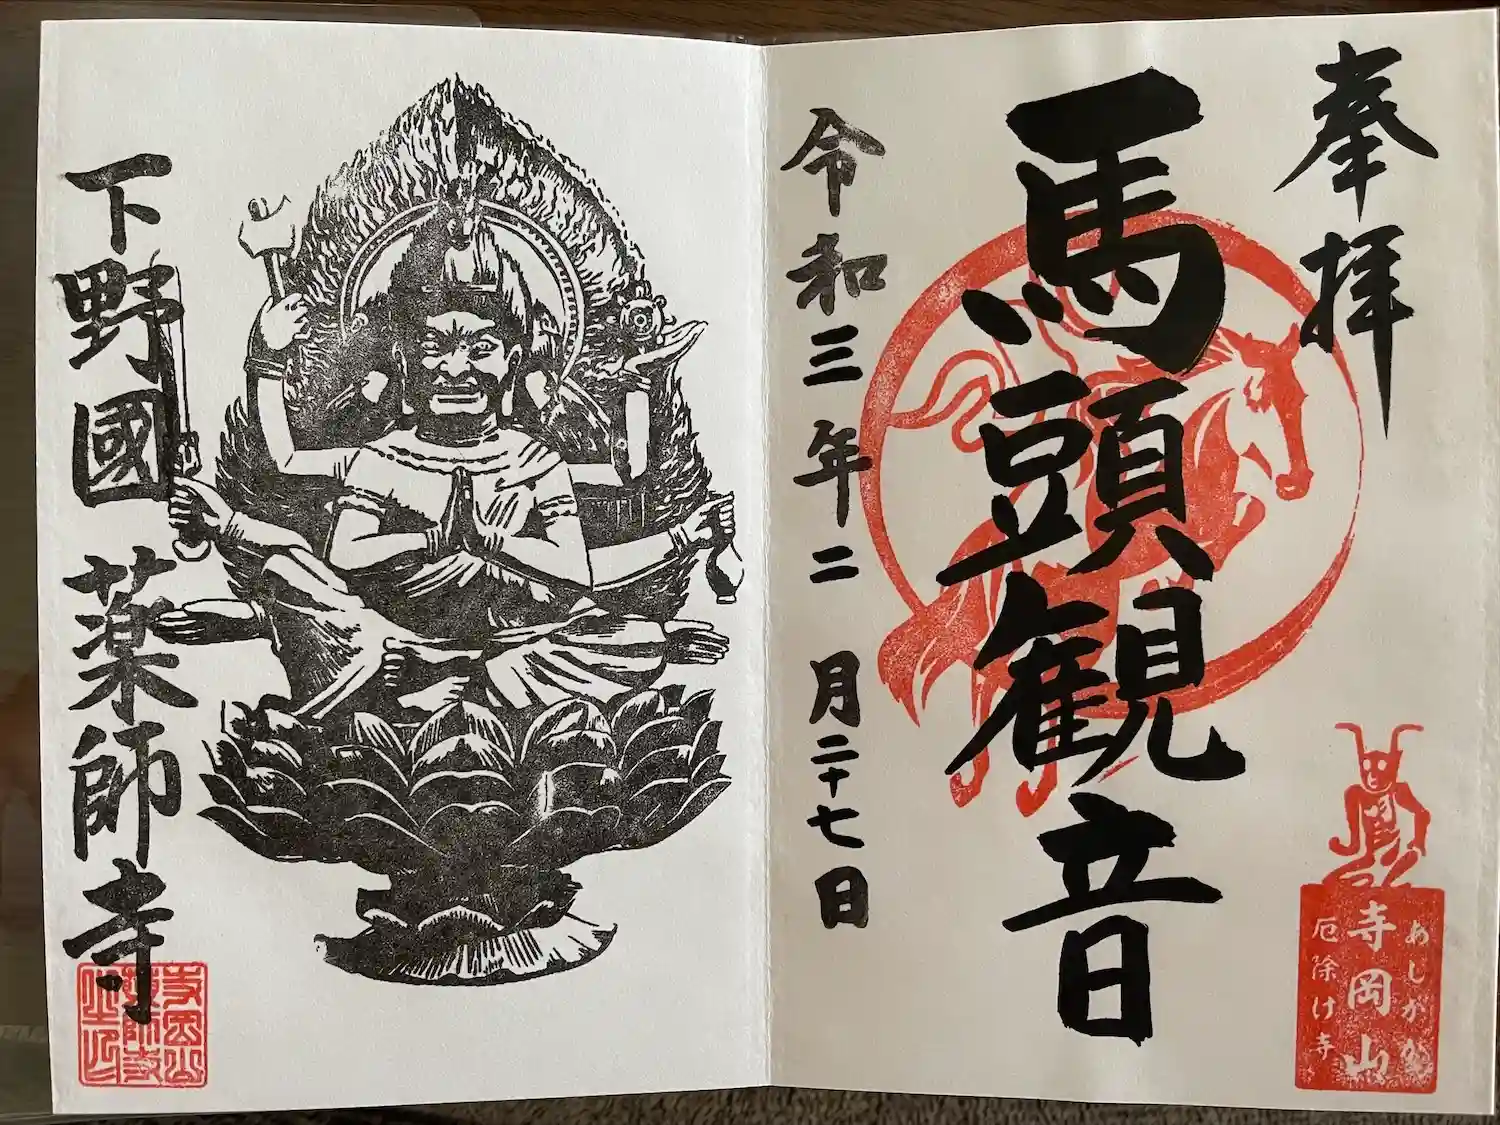 奉拝
馬頭観音
令和三年二月二十七日
あしかが
寺岡山
厄除け寺
下野國薬師寺
寺岡山
薬師寺
之印